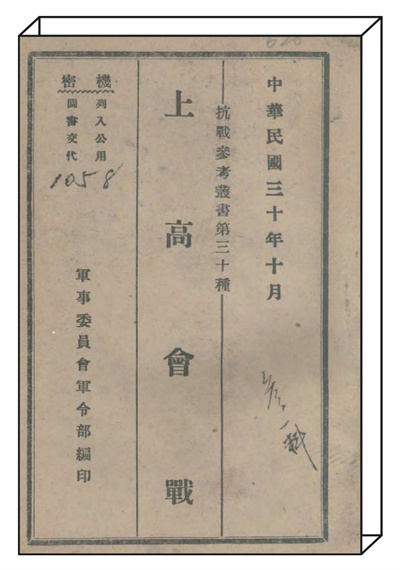 中華民國三十年十月
抗戰參考叢書第三十種
上高會戰
機密
列入公用
圖書交代
1058
軍事委員會軍令部編印